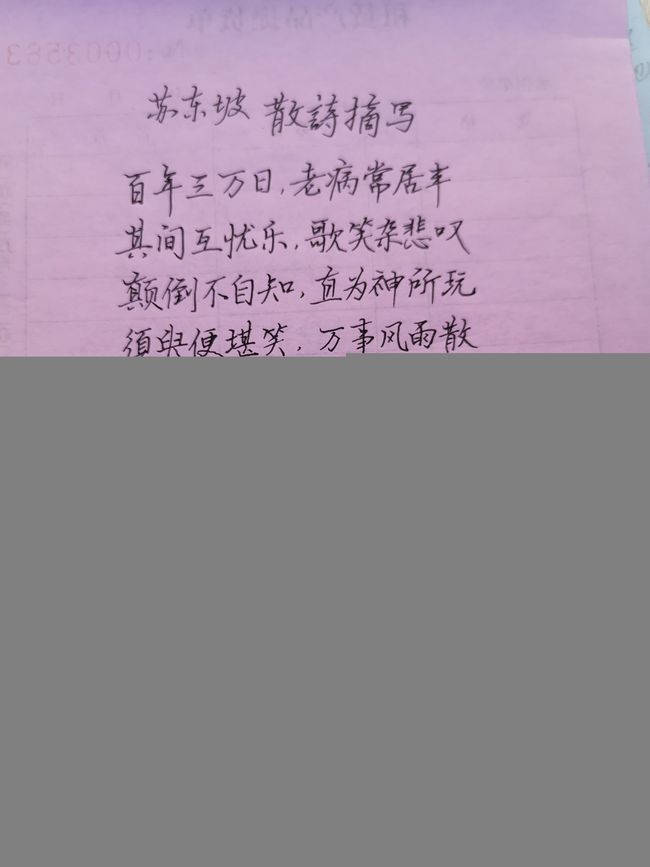 苏东坡 散詩摘写
百年三万日,老病常居半
其间互忧乐,歌笑杂悲叹
颠倒不自知,直为神所玩
須臾便堪笑,万事风雨散